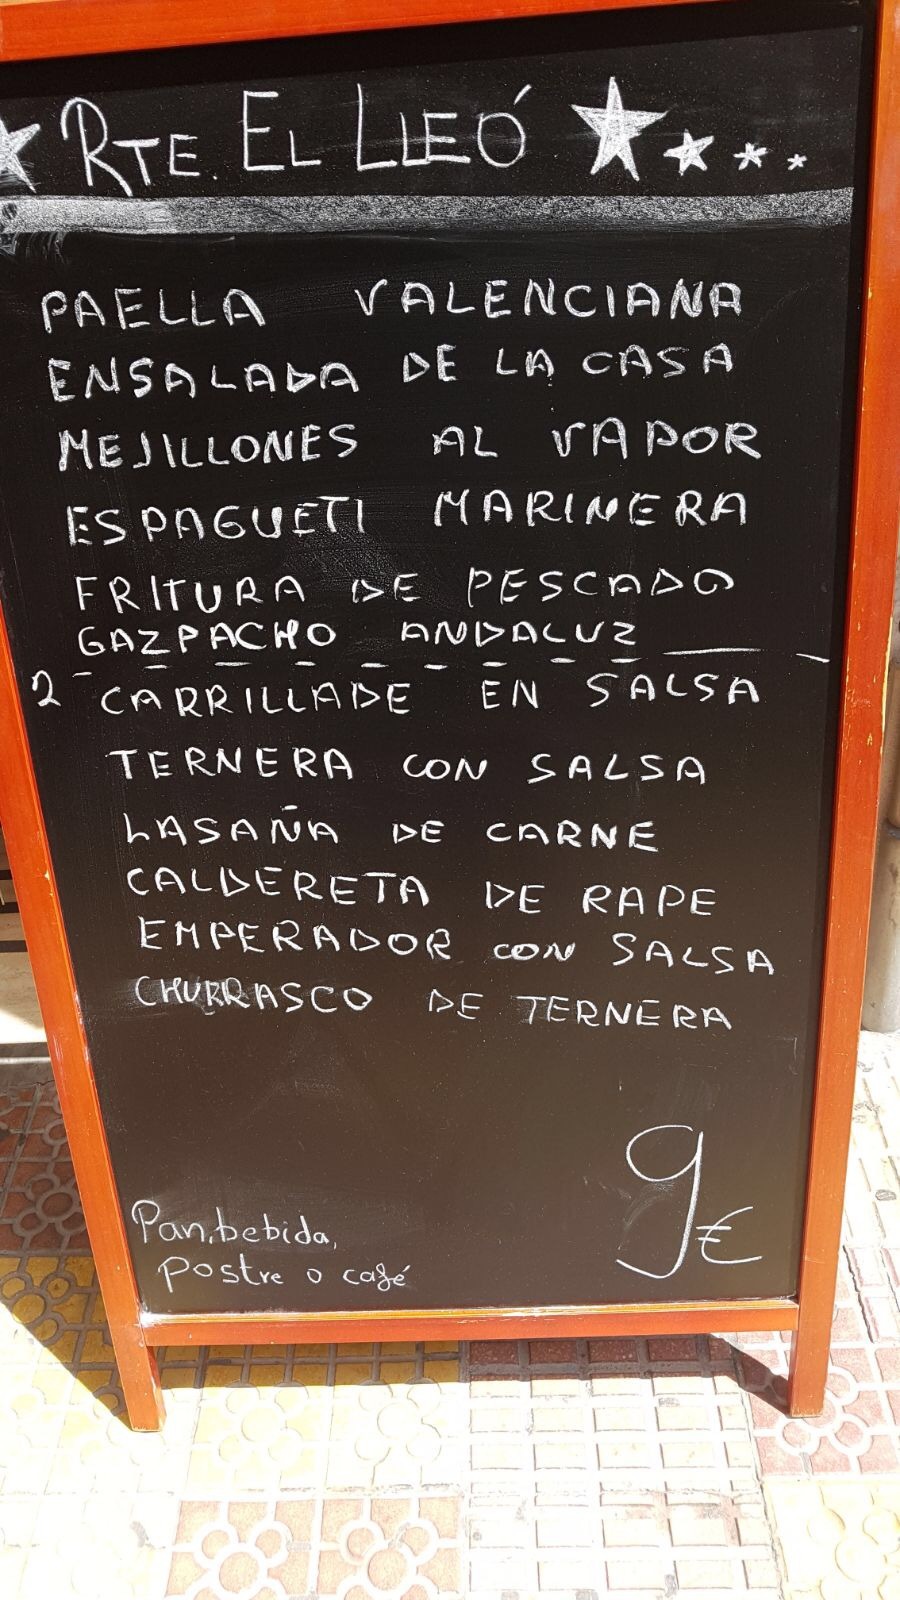 RTE. EL LLEÓ
PAELLA VALENCIANA
ENSALADA DE LA CASA
MEJILLONES AL VAPOR
ESPAGUETI MARINERA
FRITURA DE PESCADO
GAZPACHO ANDALUZ
2 CARRILLADE EN SALSA
TERNERA CON SALSA
LASAÑA DE CARNE
CALDERETA DE RAPE
EMPERADOR CON SALSA
CHURRASCO DE TERNERA
9€
Pan, bebida,
postre o café